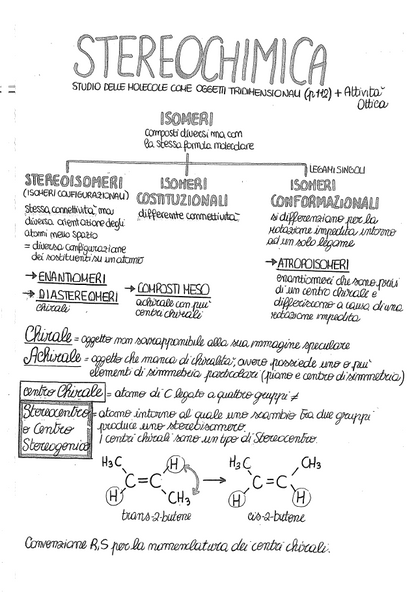 STEREOCHIMICA
STUDIO DELLE MOLECOLE COME OGGETTI TRIDIMENSIONALI (p.112) + Attività
Ottica
ISOMERI
composti diversi ma con
la stessa formula molecolare
LEGAMI SINGOLI
STEREOISOMERI
(ISOMERI CONFIGURAZIONALI)
stessa connettività ma
diversa orientazione degli
atomi nello spazio
= diversa configurazione
dei sostituenti su un atomo
→ ENANTIOMERI
→ DIASTEREOMERI
chirali
ISOMERI
COSTITUZIONALI
differente connettività
→ COMPOSTI MESO
achirale con più
centri chirali
ISOMERI
CONFORMAZIONALI
si differenziano per la
rotazione impedita intorno
ad un solo legame
→ ATROPOISOMERI
enantiomeri che sono privi
di un centro chirale e
differiscono a causa di una
rotazione impedita
Chirale = oggetto non sovrapponibile alla sua immagine speculare
Achirale = oggetto che manca di chiralità, ovvero possiede uno o più
elementi di simmetria particolari (piano e centro di simmetria)
centro Chirale = atomo di C legato a quattro gruppi ≠
Stereocentro = atomo intorno al quale uno scambio tra due gruppi
o Centro produce uno stereoisomero.
Stereogenico I centri chirali sono un tipo di Stereocentro.
H₃C H H₃C CH₃
C=C → C=C
H CH₃ H H
trans-2-butene cis-2-butene
Convenzione R,S per la nomenclatura dei centri chirali.